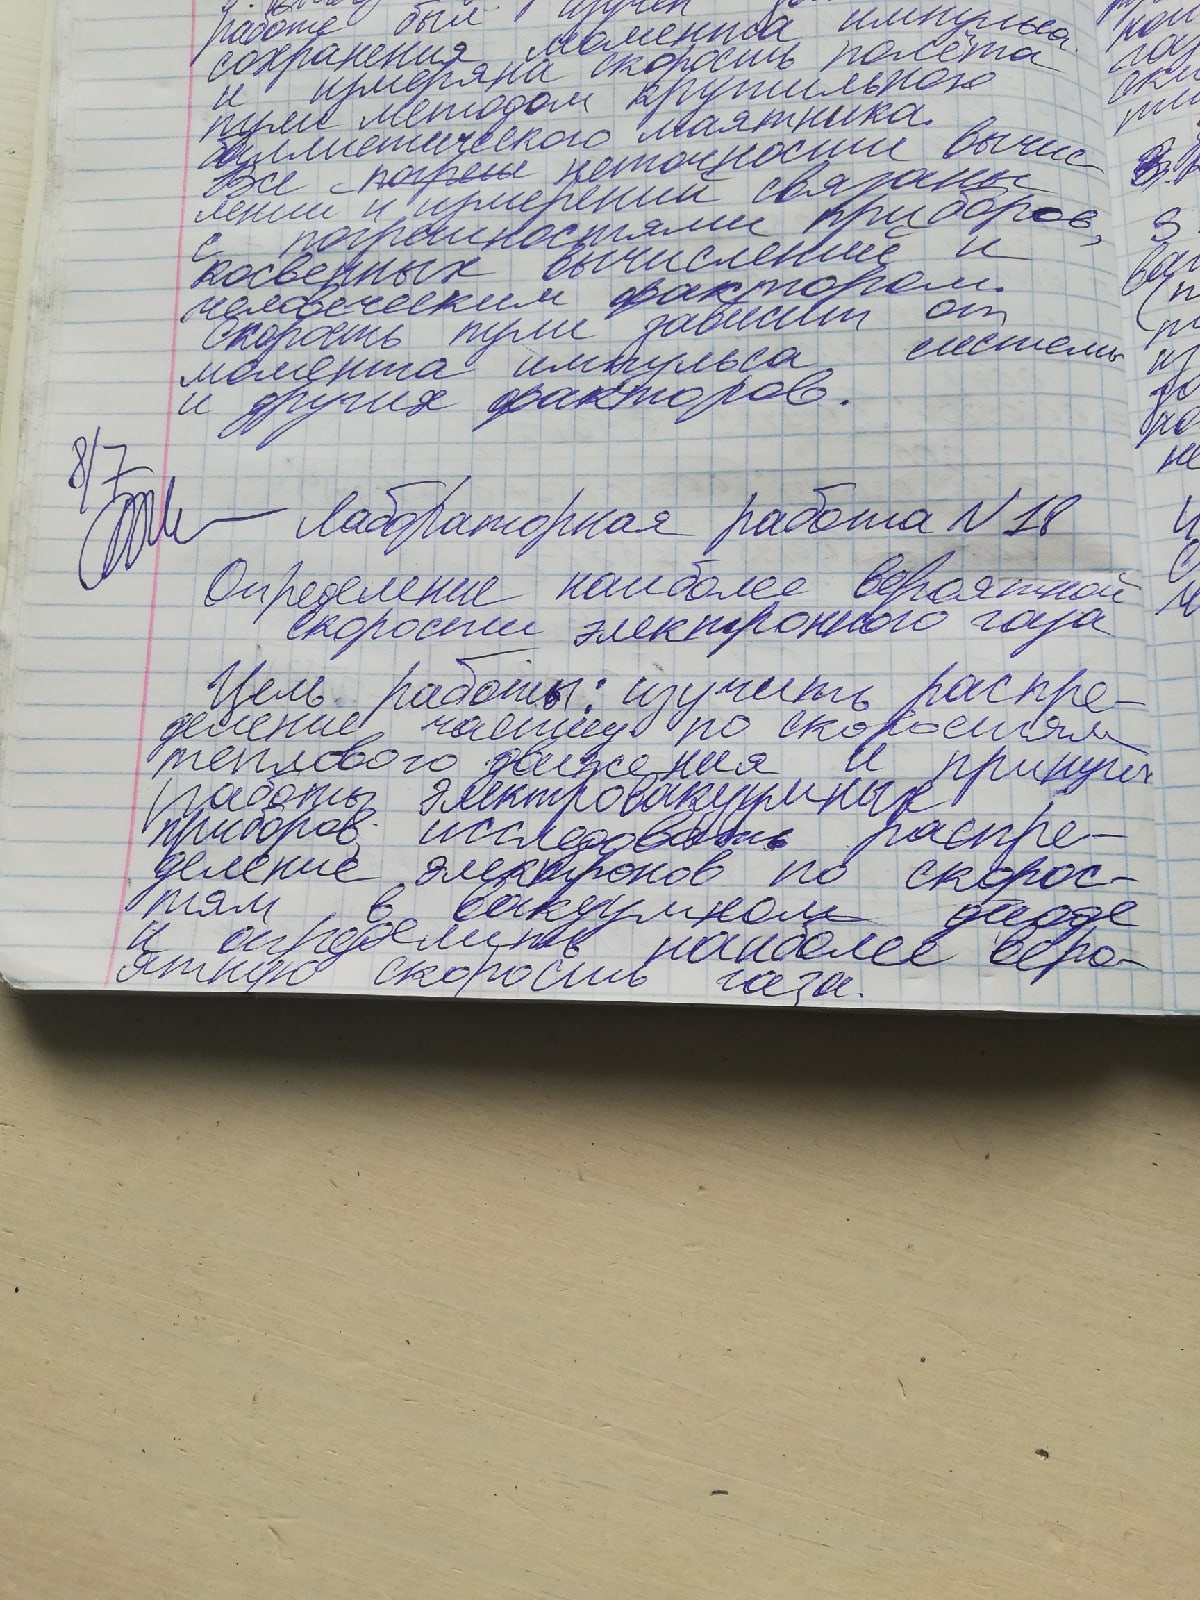 работе был изучен
сохранения момента импульса
и измеряна скорость полёта
пули методом крутильного
баллистического маятника.
Все погреш неточности вычис
лений и измерений связаны
с погрешностями приборов,
косвенных вычислений и
человеческим фактором.
Скорость пули зависит от
момента импульса системы
и других факторов.
8/7
Лабораторная работа N 18
Определение наиболее вероятной
скорости электронного газа
Цель работы: изучить распре-
деление частиц по скоростям
теплового движения и принцип
работы электровакуумных
приборов; исследовать распре-
деление электронов по скорос-
тям в вакуумном диоде
и определить наиболее веро-
ятную скорость газа.